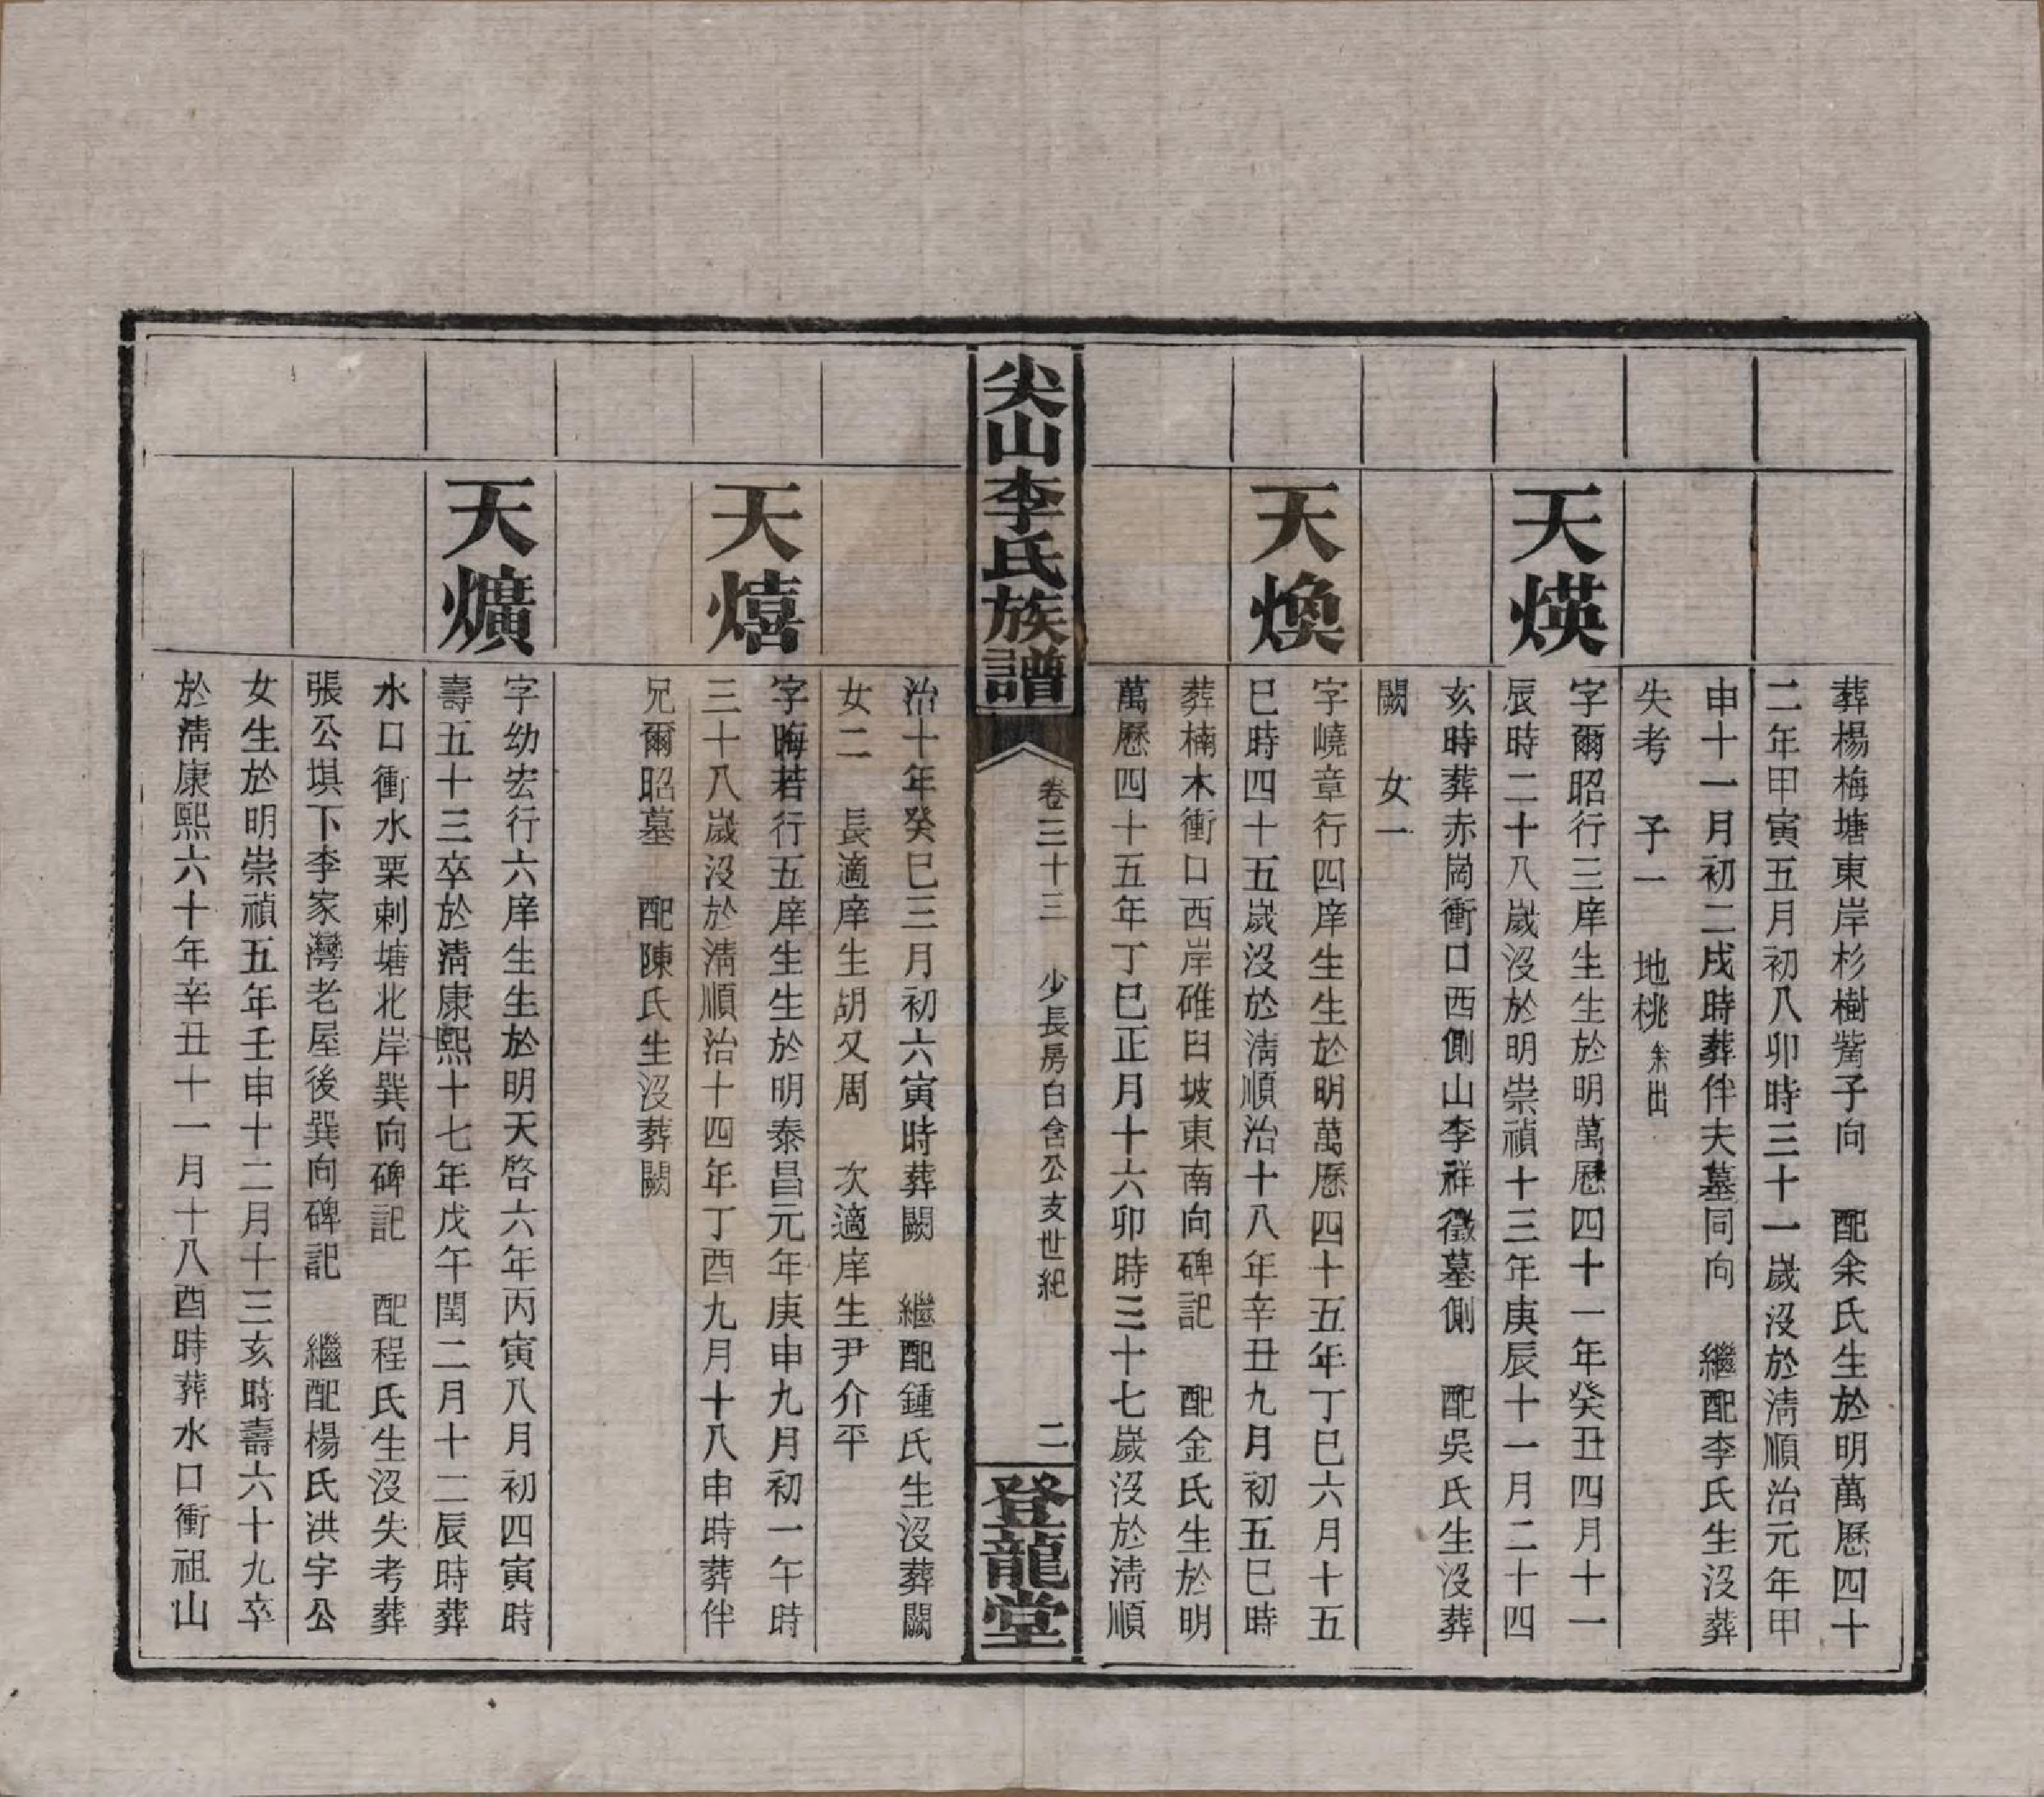 葬楊梅塘東岸杉樹觜子向　配余氏生於明萬曆四十
二年甲寅五月初八卯時三十一歲沒於淸順治元年甲
申十一月初二戌時葬伴夫墓同向　繼配李氏生沒葬
失考　子一　地桃余出
天煐
字爾昭行三庠生生於明萬曆四十一年癸丑四月十一
辰時二十八歲沒於明崇禎十三年庚辰十一月二十四
亥時葬赤崗衝口西側山李祥徵墓側　配吳氏生沒葬
闕　女一
天煥
字嶢章行四庠生生於明萬曆四十五年丁巳六月十五
巳時四十五歲沒於淸順治十八年辛丑九月初五巳時
葬楠木衝口西岸碓臼坡東南向碑記　配金氏生於明
萬曆四十五年丁巳正月十六卯時三十七歲沒於淸順
尖山李氏族譜
卷三十三　少長房白含公支世紀　二
登龍堂
治十年癸巳三月初六寅時葬闕　繼配鍾氏生沒葬闕
女二　長適庠生胡又周　次適庠生尹介平
天熺
字晦若行五庠生生於明泰昌元年庚申九月初一午時
三十八歲沒於淸順治十四年丁酉九月十八申時葬伴
兄爾昭墓　配陳氏生沒葬闕
天爌
字幼宏行六庠生生於明天啓六年丙寅八月初四寅時
壽五十三卒於淸康熙十七年戊午閏二月十二辰時葬
水口衝水栗刺塘北岸巽向碑記　配程氏生沒失考葬
張公塘下李家灣老屋後巽向碑記　繼配楊氏洪宇公
女生於明崇禎五年壬申十二月十三亥時壽六十九卒
於淸康熙六十年辛丑十一月十八酉時葬水口衝祖山